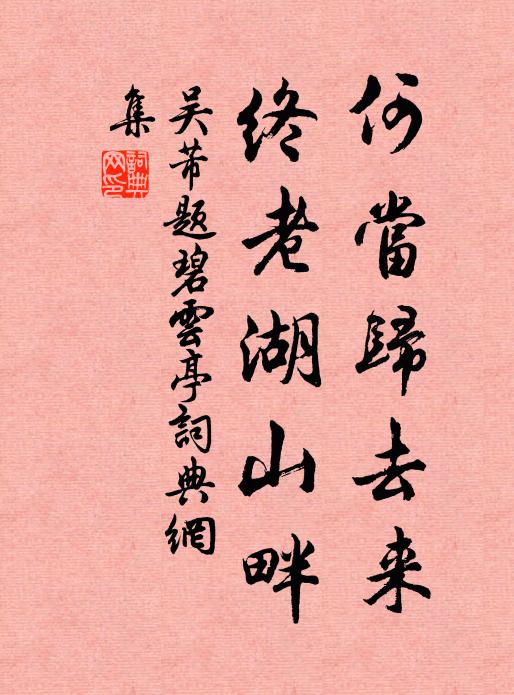 何當歸去来
終老湖山畔
吴芾题碧雲亭詞典網
集
詞典
网印